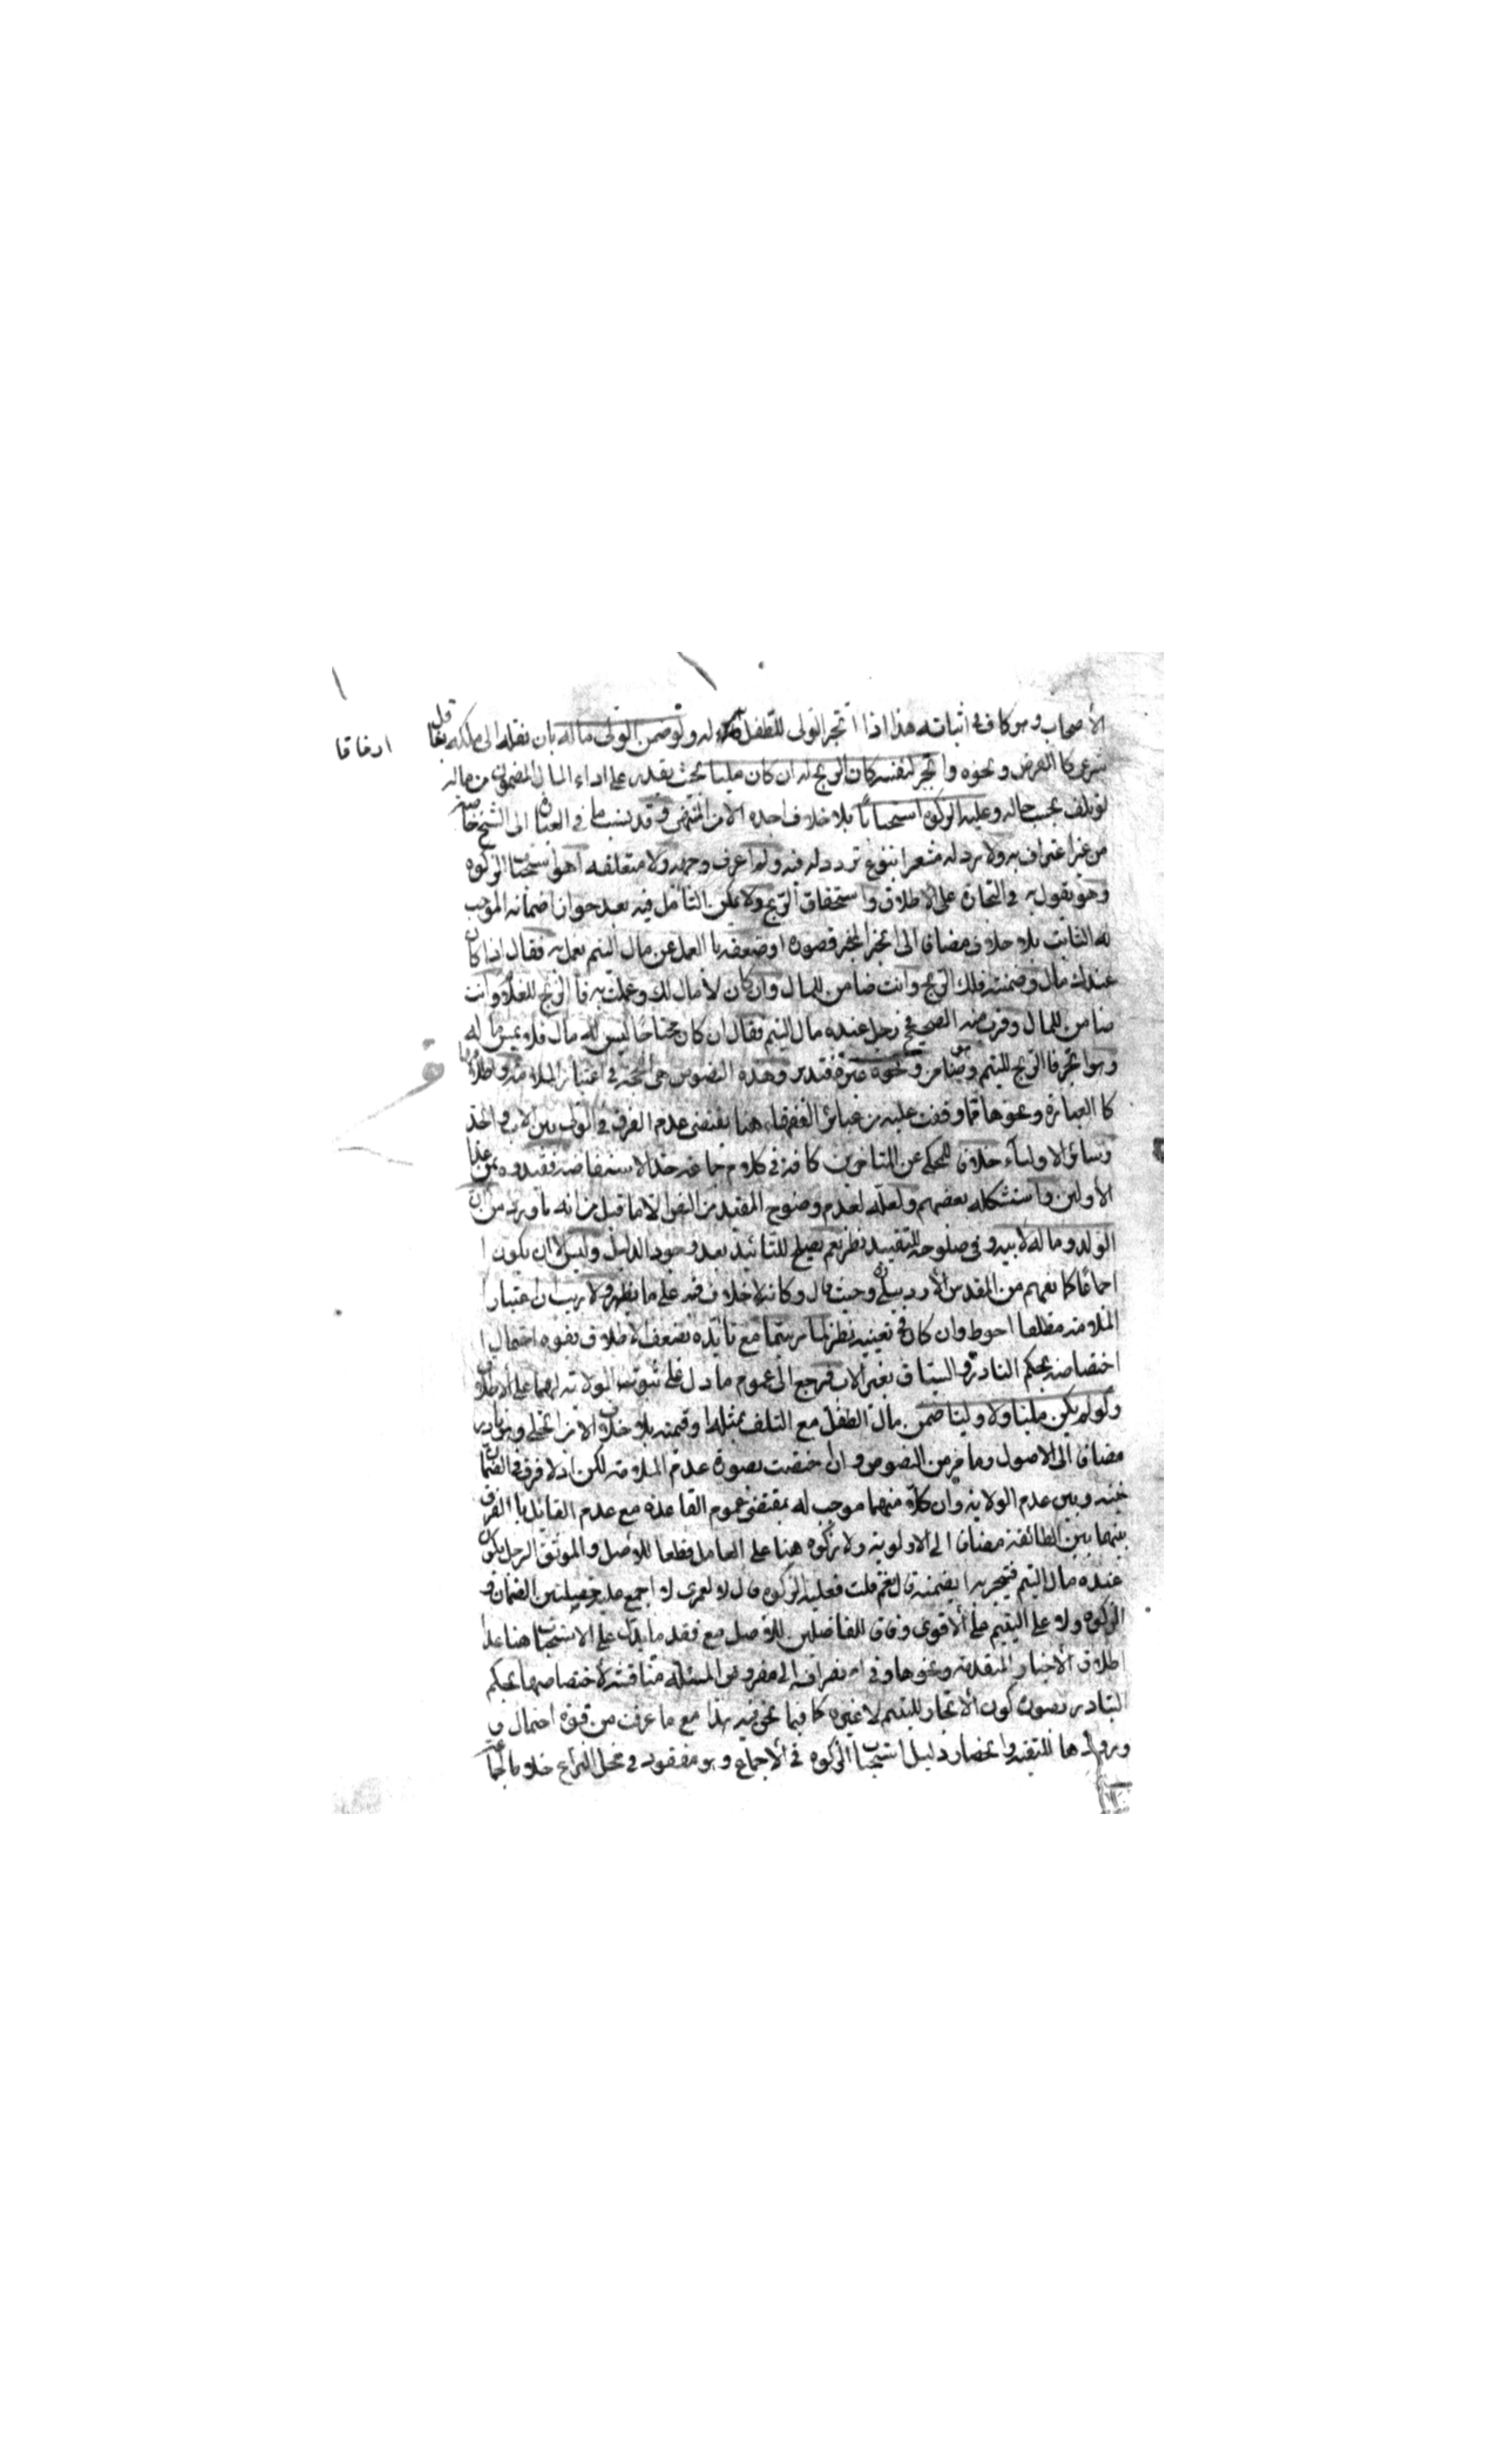 الأصحاب وهو كاف في اثباته هذا اذا اتجر الولي للطفل له ولو ضمن الولي ماله بان نقله الى ملكه
ارفاقا
شرعي كالقرض ونحوه واتجر لنفسه كان الربح له ان كان مليا بحيث يقدر على اداء المال المضمون من ماله
لو تلف بحسب حاله وعليه الزكوة استحبابا بلا خلاف اجده الا من وقد ينسب ما في العبارة الى الشيخ خاصة
من غير اعتراف به ولا برد له مشعرا بنوع تردد له فيه ولم اعرف وجهه ولا متعلقه اهو استحباب الزكوة
وهو يقول به في التجارة على الاطلاق او استحقاق الربح ولا يمكن التأمل فيه بعد جواز ضمانه الموجب
له الثابت بلا خلاف مضافا الى الخبر المنجبر قصوره او ضعفه بالعمل عن مال اليتيم يعمل به فقال اذا كان
عندك مال وضمنته فلك الربح وانت ضامن للمال وان كان لا مال لك وعملت به فالربح للغلام وانت
ضامن للمال وقريب منه الصحيح في رجل عنده مال اليتيم فقال ان كان محتاجا ليس له مال فلا يمس ماله
وهو اتجر فالربح لليتيم وهو ضامن ونحوه غيره فتدبر وهذه النصوص هي الحجة في اعتبار الملاءة واطلاقها
كالعبارة ونحوها مما وقفت عليه من عبائر الفقهاء هنا يقتضي عدم الفرق في الولي بين الاب والجد
وسائر الاولياء خلافا للمحكي عن المتأخرين كافة في كلام جماعة حد الاستفاضة فقيدوه بمن عدا
الأولين واستشكله بعضهم ولعله لعدم وضوح المقيد من النص الا ما قيل من انه ما ورد من ان
الولد وماله لابيه وفي صلوحه للتقييد نظر نعم يصلح للتأييد بعد وجود الدليل وليس الا ان يكون
اجماعا كما يفهم من المقدس الأردبيلي ره وحيث قال وكانه لا خلاف فيه على ما يظهر ولا ريب ان اعتبار
الملاءة مطلقا احوط وان كان في تعينه نظر لما مر سيما مع تأيده بضعف الاطلاق بقوة احتمال
اختصاصه بحكم التبادر والسياق بغير الاب فيرجع الى عموم ما دل على ثبوت الولاية لهما على الاطلاق
ولو لم يكن مليا ولا وليا ضمن مال الطفل مع التلف بمثله او قيمته بلا خلاف الا من الحلي وهو نادر
مضافا الى الاصول وما مر من النصوص وان اختصت بصورة عدم الملاءة لكن اذ لا فرق في الضمان
بينه وبين عدم الولاية وان كلا منهما موجب له بمقتضى عموم القاعدة مع عدم القائل بالفرق
بينهما بين الطائفة مضافا الى الاولوية ولا زكوة هنا على العامل قطعا للأصل والموثق الرجل يكون
عنده مال اليتيم فيتجر به ايضمنه قال نعم قلت فعليه الزكوة قال لا لعمري لا اجمع عليه خصلتين الضمان و
الزكوة ولا على اليتيم على الأقوى وفاقا للفاضلين للأصل مع فقد ما يدل على الاستحباب هنا عدا
اطلاق الأخبار المتقدمة ونحوها وفي انصرافه الى مفروض المسئلة مناقشة لاختصاصها بحكم
التبادر بصورة كون الاتجار لليتيم لا غيره كما فيما نحن فيه هذا مع ما عرفت من قوة احتمال
ورودها للتقية وانحصار دليل استحباب الزكوة في الأجماع وهو مفقود في محل النزاع خلافا لجماعة